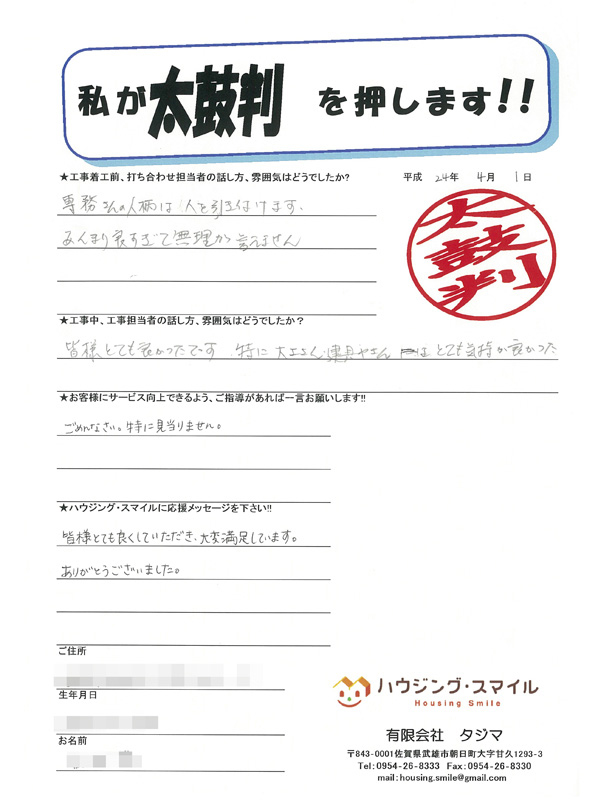 私が太鼓判を押します!!
★工事着工前、打ち合わせ担当者の話し方、雰囲気はどうでしたか?
平成 24年 4月 1日
専務さんの人柄は人を引き付けます。
あんまり良すぎて無理が言えません
太鼓判
★工事中、工事担当者の話し方、雰囲気はどうでしたか？
皆様とても良かったです。特に大工さん、建具やさんはとても気持が良かった
★お客様にサービス向上できるよう、ご指導があれば一言お願いします!!
ごめんなさい。特に見当りません。
★ハウジング・スマイルに応援メッセージを下さい!!
皆様とても良くしていただき、大変満足しています。
ありがとうございました。
ご住所
生年月日
お名前
ハウジング・スマイル
Housing Smile
有限会社 タジマ
〒843-0001佐賀県武雄市朝日町大字甘久1293-3
Tel:0954-26-8333 Fax:0954-26-8330
mail:housing.smile@gmail.com